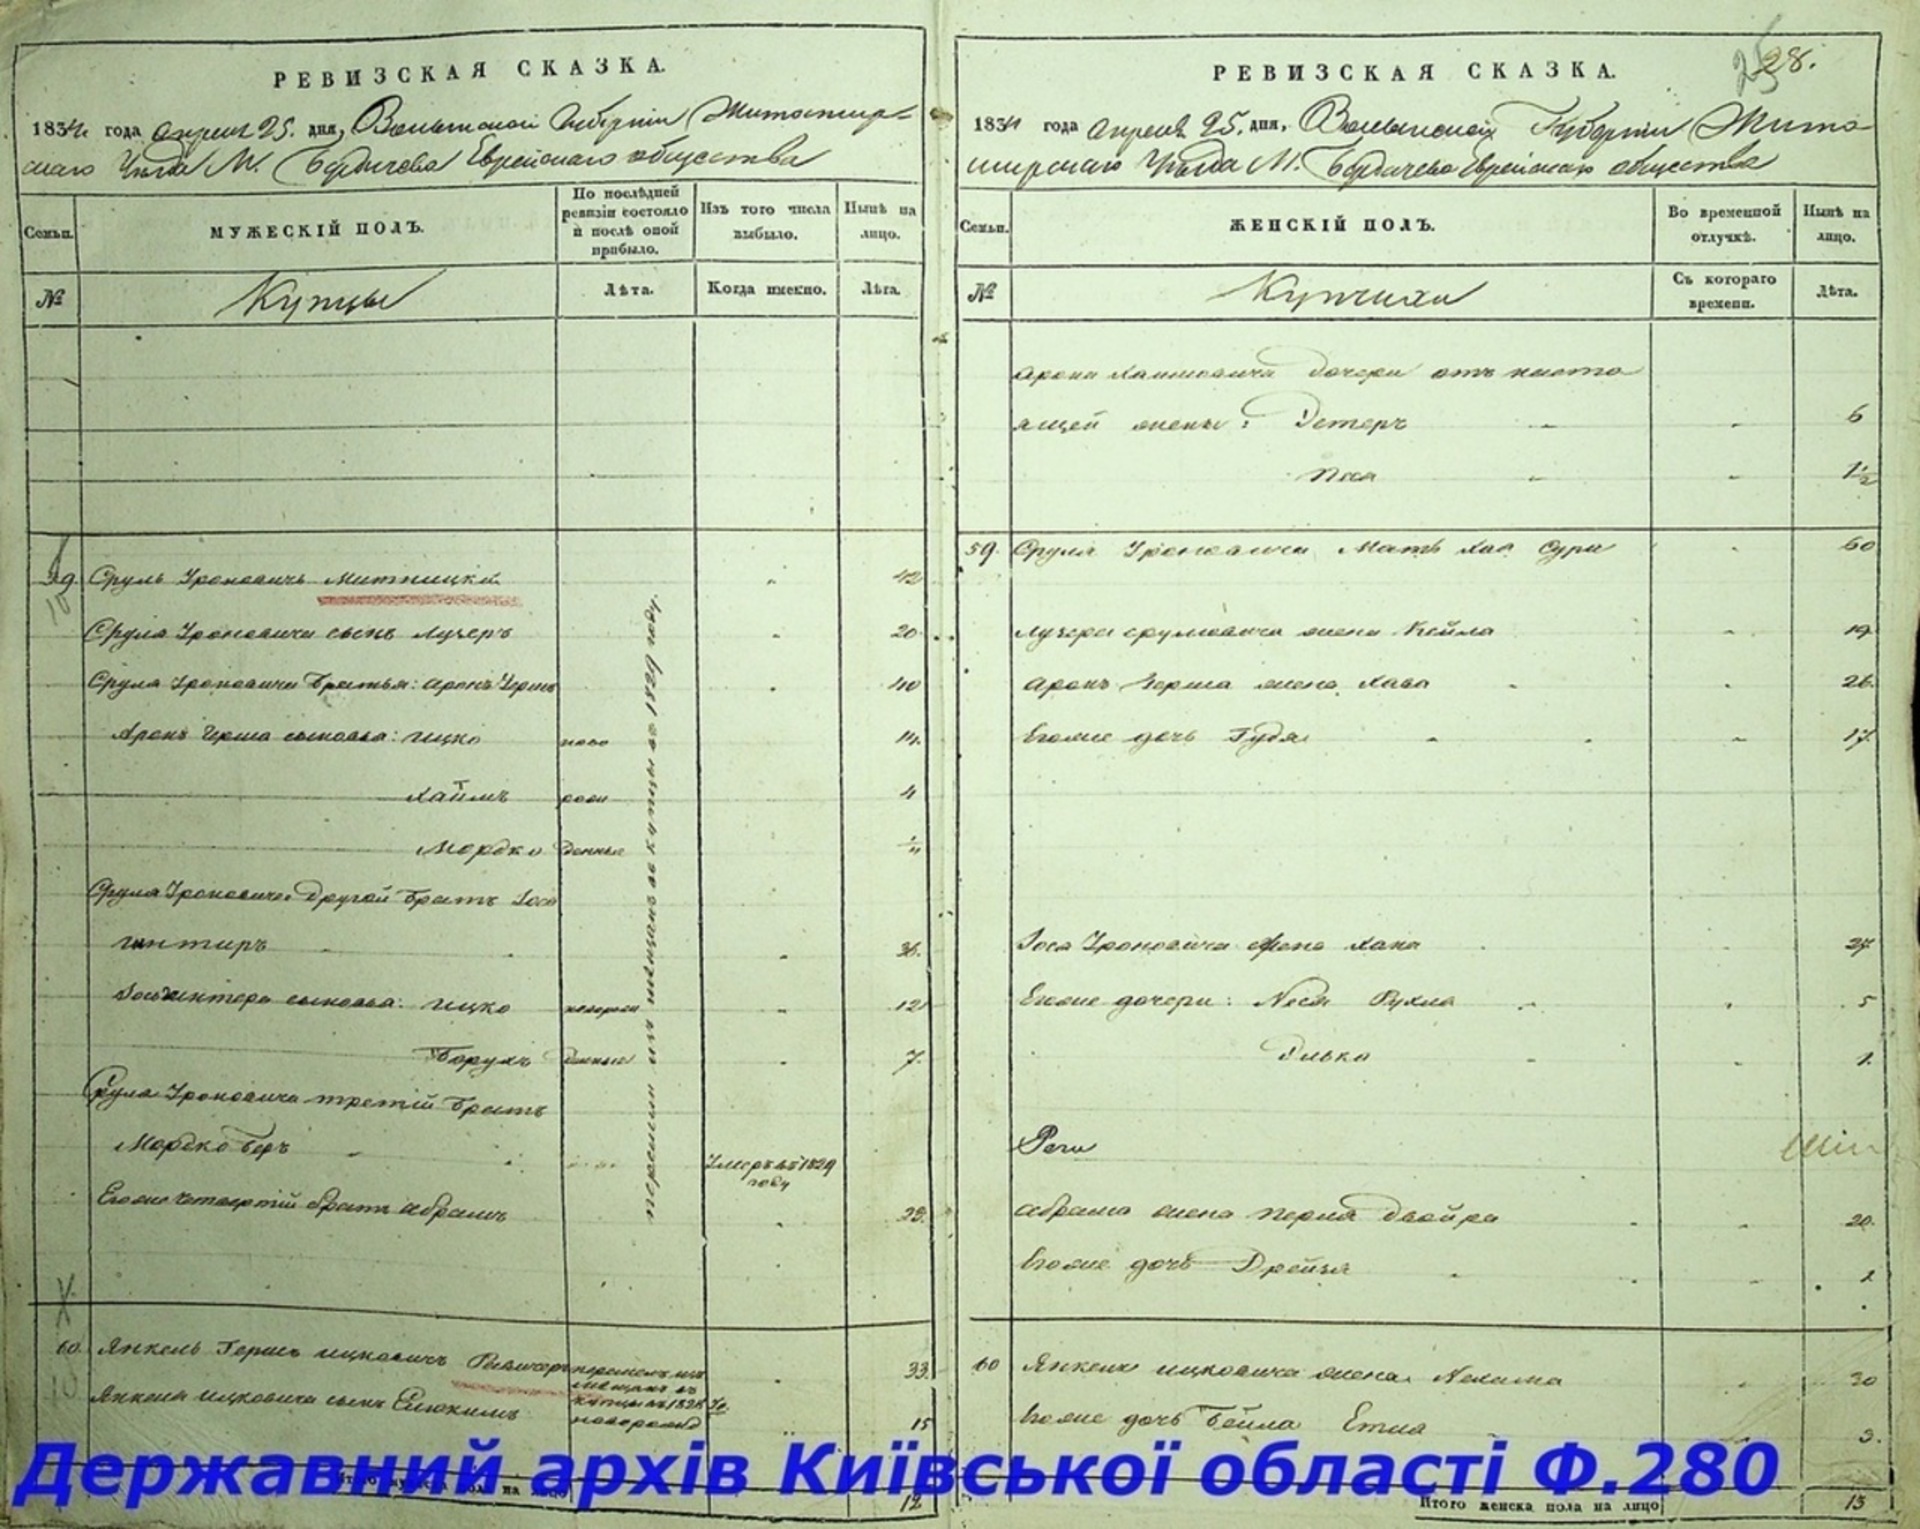 РЕВИЗСКАЯ СКАЗКА.
1834 года апреля 25. дня, Волынской Губернiи Житомир-
скаго Уѣзда М. Бердичева Еврейскаго общества
Семьи.
МУЖЕСКІЙ ПОЛЪ.
По послѣдней ревизіи состояло и послѣ оной прибыло.
Изъ того числа выбыло.
Нынѣ на лицо.
№
Купцы
Лѣта.
Когда именно.
Лѣта.
59. Сруль Ароновичъ Митницкій 42
Сруля Ароновича сынъ Лузеръ 20
Сруля Ароновича братья: Аронъ Гершъ 40
Аронъ Герша сыновья: Ицко ново 14.
Хаимъ рож 4
Мордко денные
Сруля Ароновича другой братъ Іось
Сруля Ароновича третій братъ
Іось сыновья: Ицко новорож 12
Борухъ денные 7.
Мордко Беръ Умеръ въ 1829 году
Егоже четвертый братъ Абрамъ
перешли изъ мещанъ въ купцы въ 1829 году.
60. Янкель Гершъ Ицковичъ перешелъ изъ мещанъ въ купцы въ 1828 го. 33.
Янкеля Ицковича сынъ новорожд 15
Итого мужеска пола на лицо 12
РЕВИЗСКАЯ СКАЗКА.
28.
1834 года апреля 25. дня, Волынской Губернiи Жито-
мирскаго Уѣзда М. Бердичева Еврейскаго общества
Семьи.
ЖЕНСКІЙ ПОЛЪ.
Во временной отлучкѣ.
Нынѣ на лицо.
№
Купчихи
Съ котораго времени.
Лѣта.
Арона Хаимовича дочери отъ насто
ящей жены: Эстеръ 6
Песя 1½
59. Сруля Ароновича Мать Хая Сура 60
Лузера Срулевича жена Кейла 19
Аронъ Герша жена Хава 26.
Егоже дочь Гудя 17.
Іося Ароновича жена Хана 27.
Егоже дочери: Неся Рухля 5
Ривка 1
Абрама жена Перля Двойра 20.
Егоже дочь Дрейзя 1
60 Янкеля Ицковича жена Нехама 30
Егоже дочь Бейла Етля 3.
Итого женска пола на лицо 13
Державний архів Київської області Ф.280